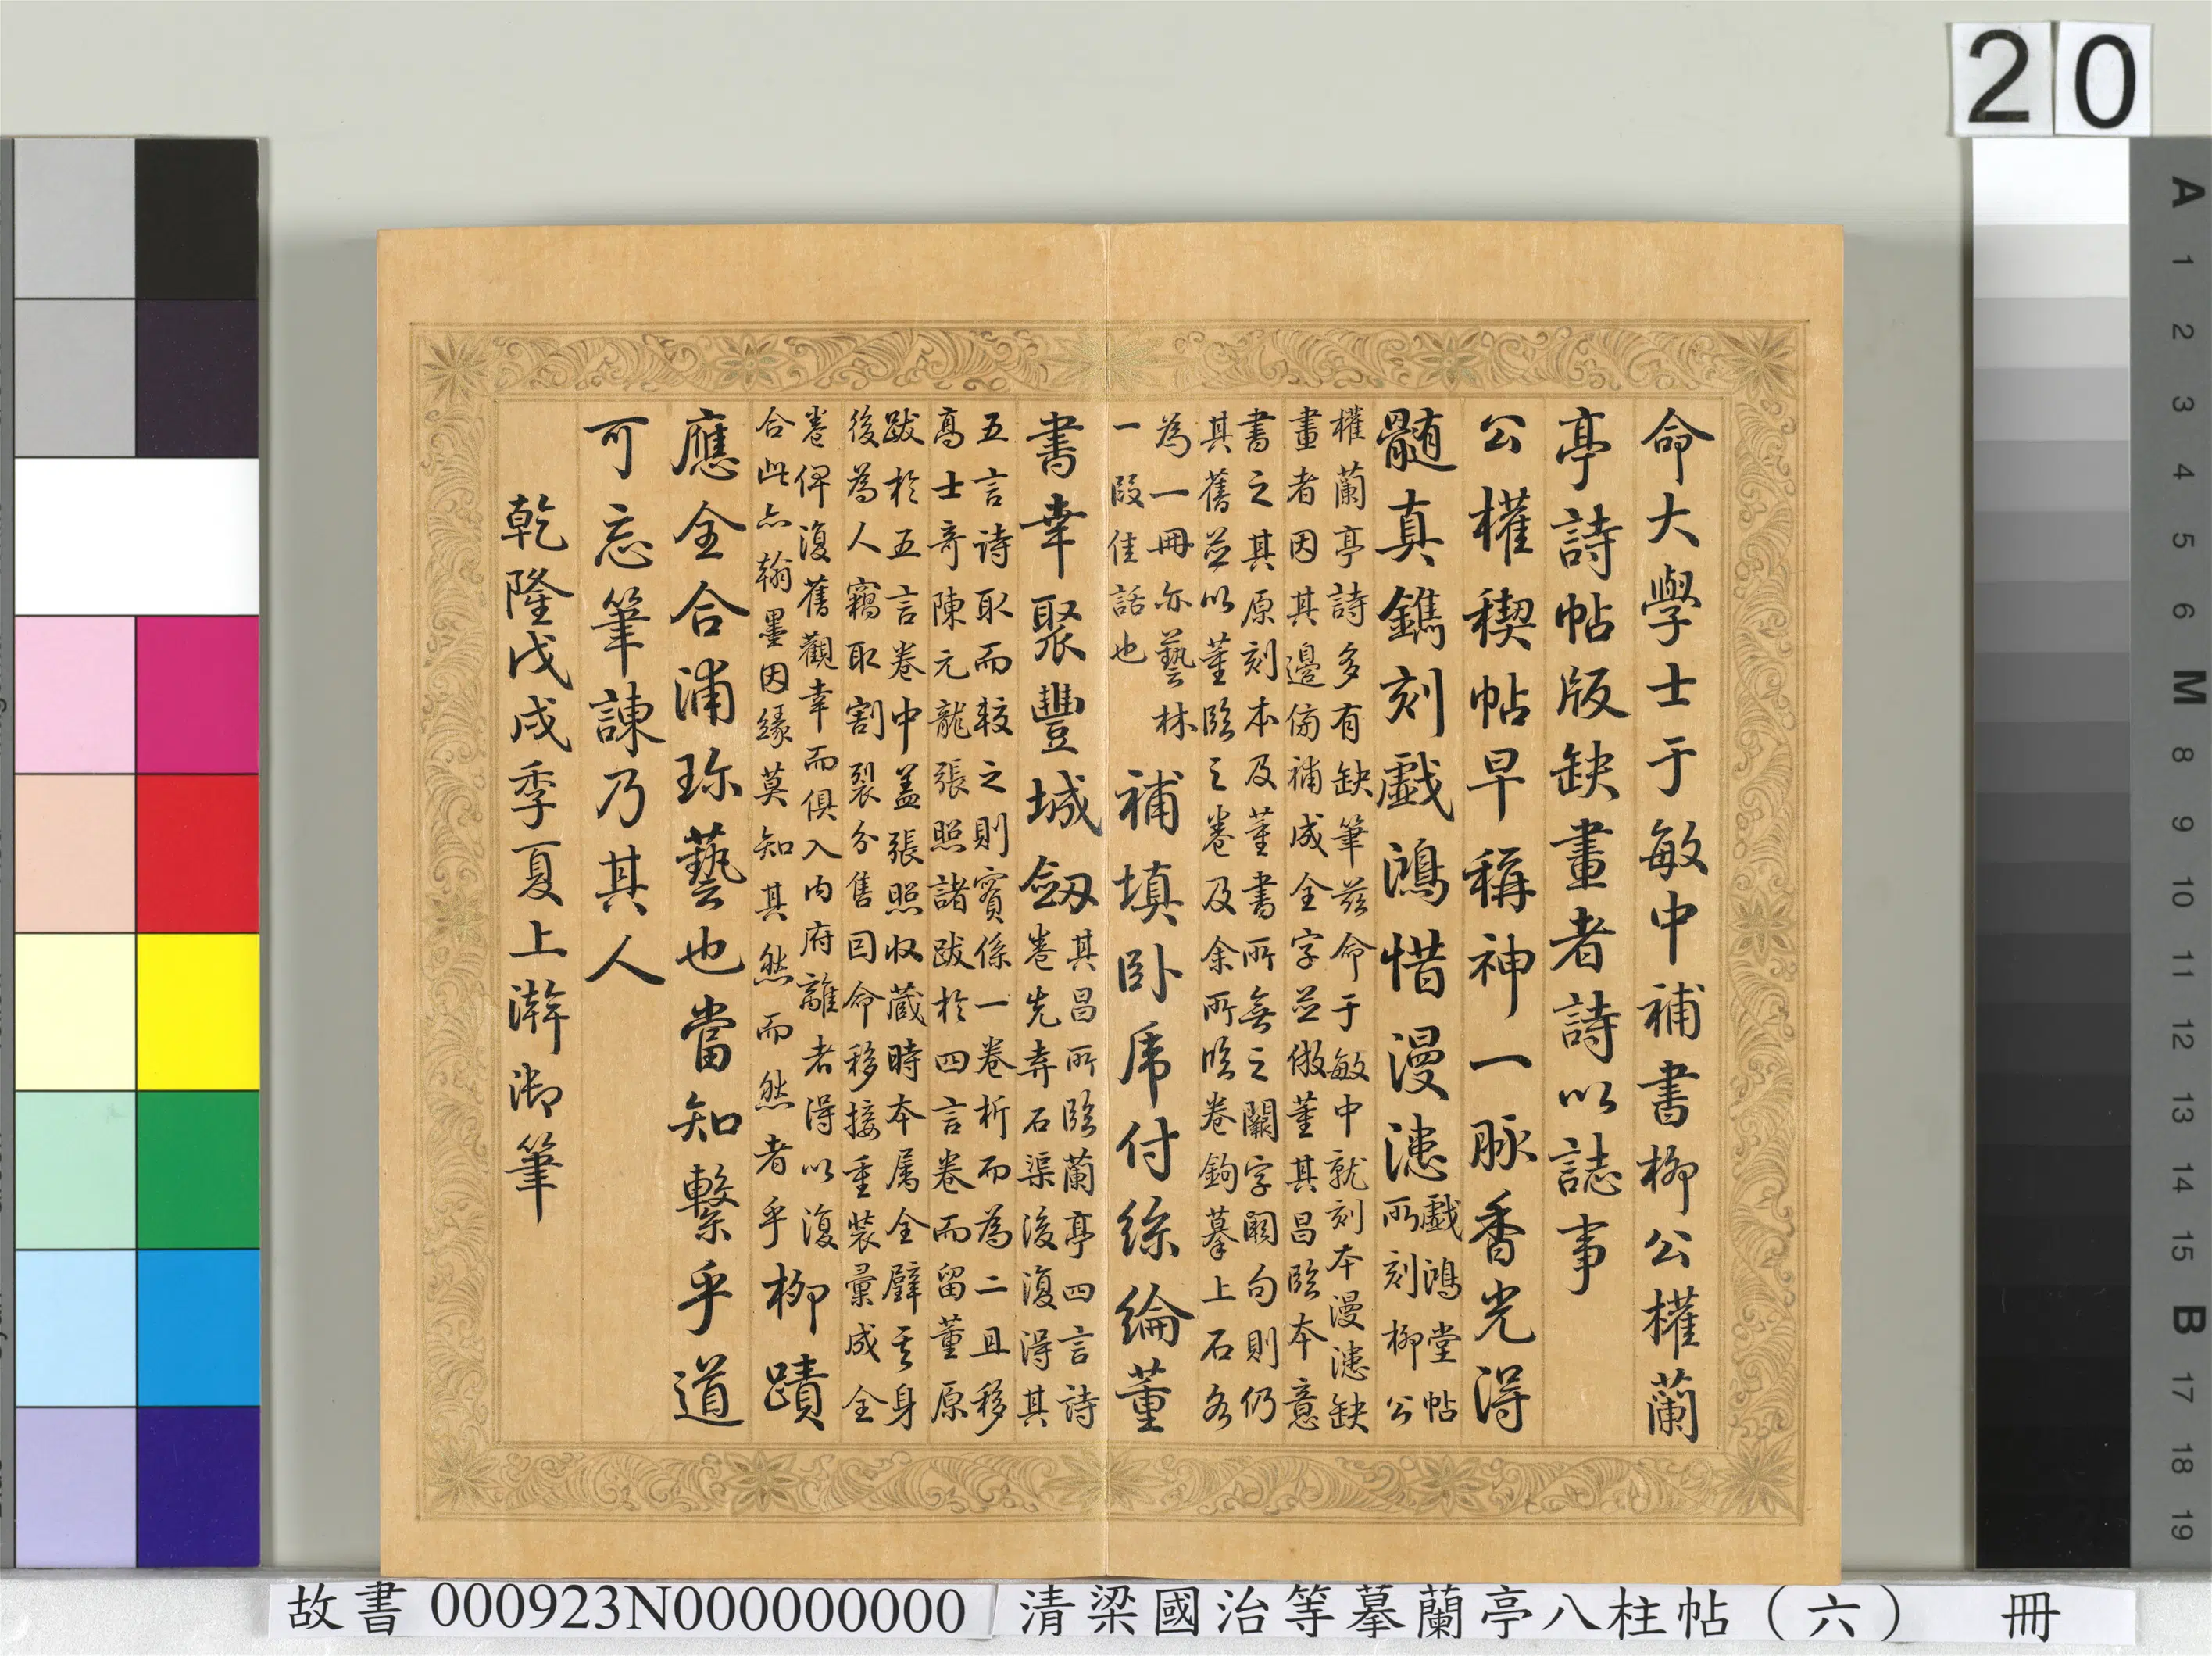 20
命大學士于敏中補書柳公權蘭
亭詩帖版缺畫者詩以誌事
公權稧帖早稱神一脉香光得
髓真鐫刻戲鴻惜漫漶
戲鴻堂帖
所刻柳公
權蘭亭詩多有缺筆茲命于敏中就刻本漫漶缺
畫者因其邊傍補成全字並倣董其昌臨本意
書之其原刻本及董書所無之闕字闕句則仍
其舊並以董臨之卷及余所臨卷鉤摹上石各
為一冊亦藝林
一段佳話也
補填卧虎付絲綸董
書幸聚豐城劔
其昌所臨蘭亭四言詩
卷先弆石渠後復得其
五言詩取而較之則實係一卷析而為二且移
高士奇陳元龍張照諸跋於四言卷而留董原
跋於五言卷中蓋張照收藏時本屬全璧其身
後為人竊取割裂分售因命移接重裝彙成全
卷俾復舊觀幸而俱入內府離者得以復
合此亦翰墨因緣莫知其然而然者乎
柳蹟
應全合浦珎藝也當知繫乎道
可忘筆諫乃其人
乾隆戊戌季夏上澣御筆
A 1 2 3 4 5 6 M 8 9 10 11 12 13 14 15 B 17 18 19
故書 000923N000000000 清梁國治等摹蘭亭八柱帖（六） 冊